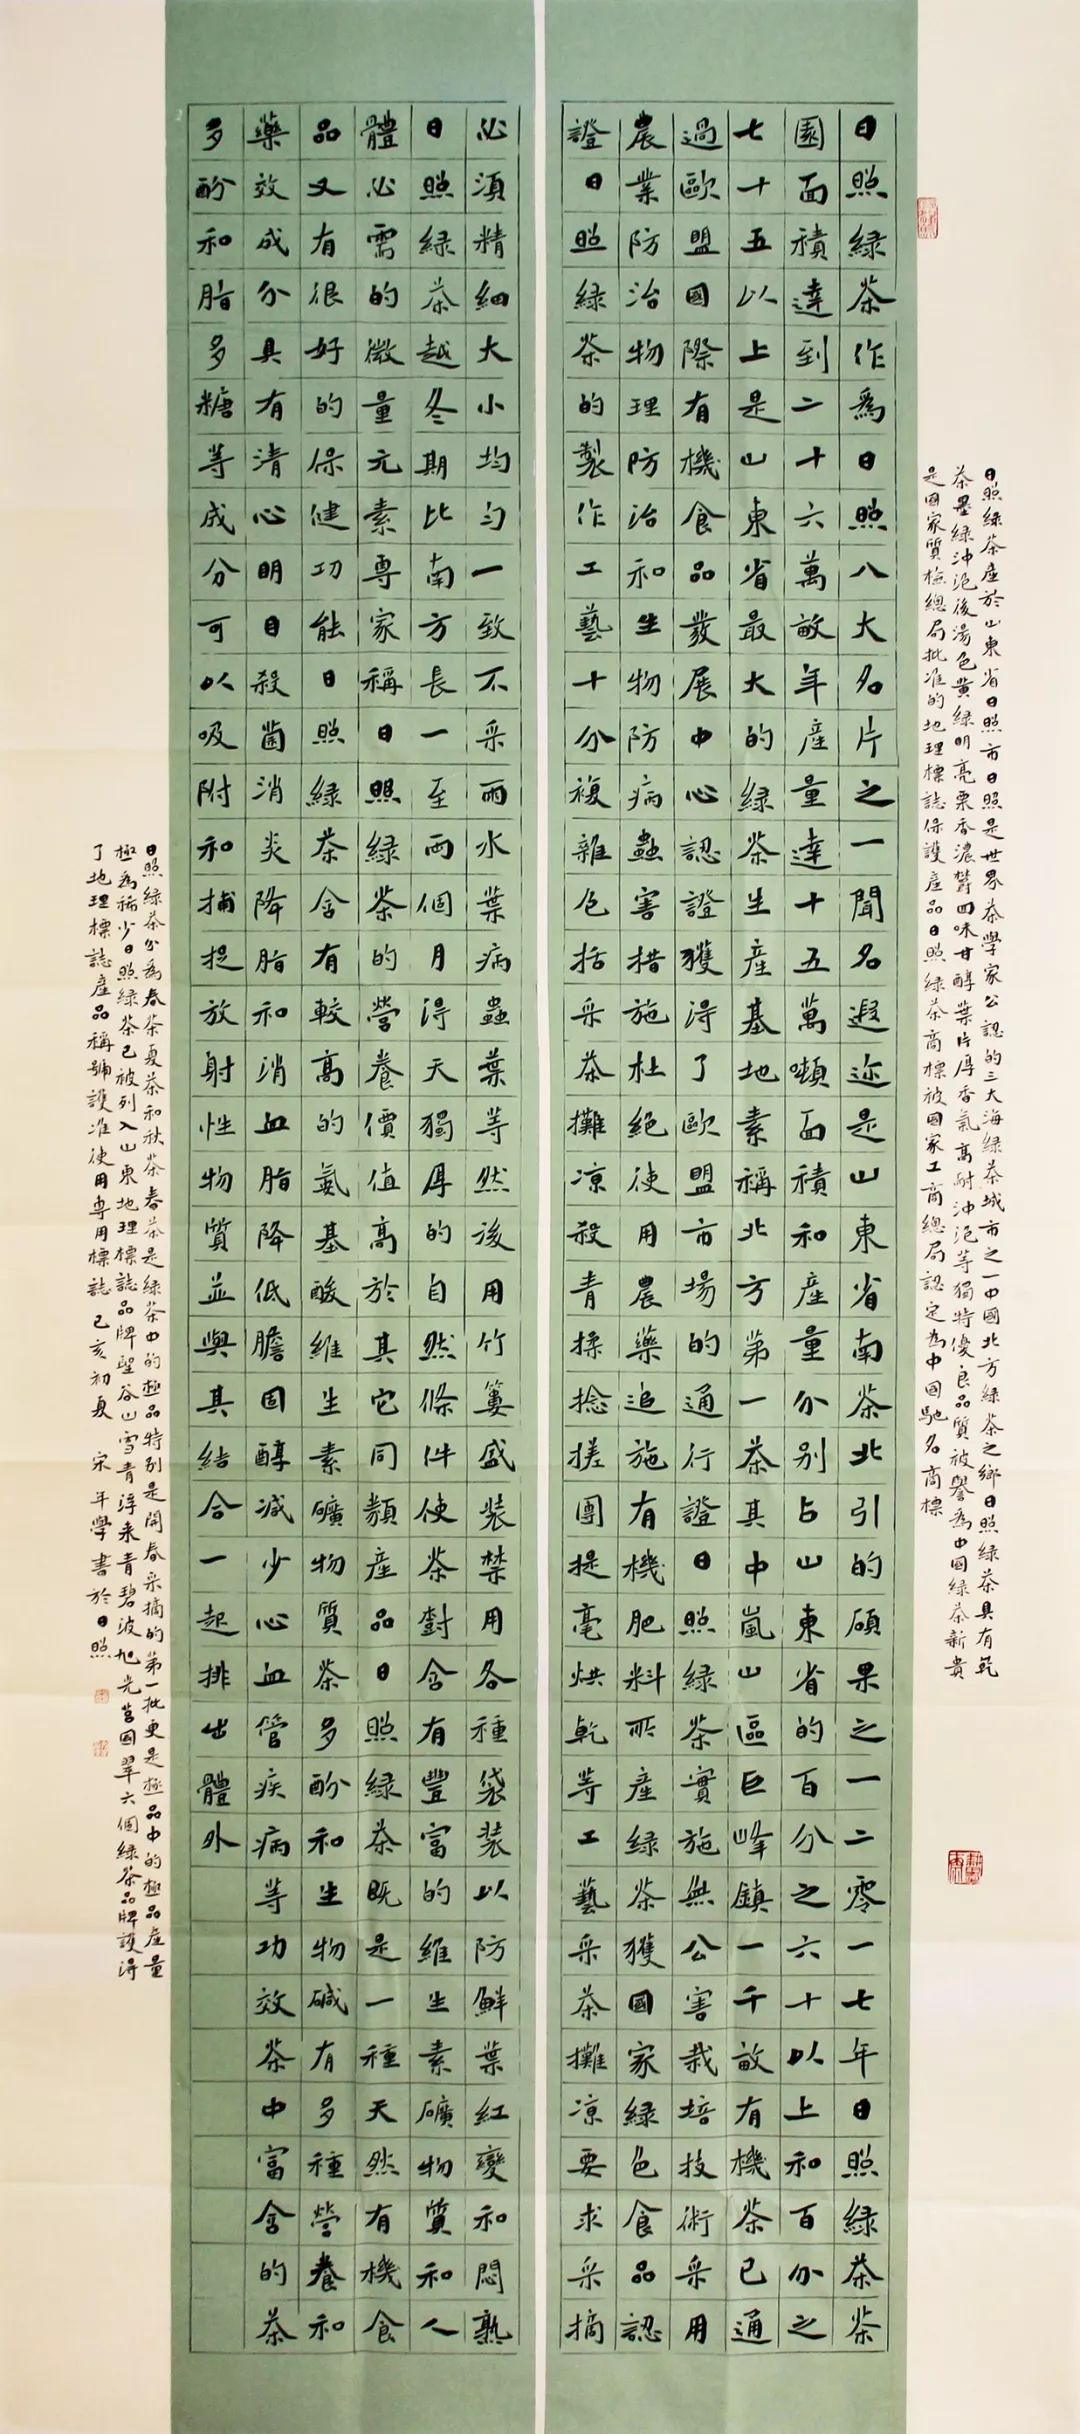 日照綠茶產於山東省日照市日照是世界茶學家公認的三大海綠茶城市之一中國北方綠茶之鄉日照綠茶具有乾
茶墨綠沖泡後湯色黃綠明亮栗香濃鬱回味甘醇葉片厚香氣高耐沖泡等獨特優良品質被譽爲中國綠茶新貴
是國家質檢總局批准的地理標誌保護產品日照綠茶商標被國家工商總局認定爲中國馳名商標
日照綠茶作爲日照八大名片之一聞名遐迩是山東省南茶北引的碩果之一二零一七年日照綠茶茶
園面積達到二十六萬畝年產量達十五萬噸面積和產量分别占山東省的百分之六十以上和百分之
七十五以上是山東省最大的綠茶生產基地素稱北方第一茶其中嵐山區巨峰鎮一千畝有機茶已通
過歐盟國際有機食品發展中心認證獲淂了歐盟市場的通行證日照綠茶實施無公害栽培技術采用
農業防治物理防治和生物防病蟲害措施杜絕使用農藥追施有機肥料所產綠茶獲國家綠色食品認
證日照綠茶的製作工藝十分複雜包括采茶攤凉殺青揉捻搓團提毫烘乾等工藝采茶攤凉要求采摘
必須精細大小均勻一致不采雨水葉病蟲葉等然後用竹簍盛裝禁用各種袋裝以防鮮葉紅變和悶熟
日照綠茶越冬期比南方長一至兩個月淂天獨厚的自然條件使茶對含有豐富的維生素礦物質和人
體必需的微量元素專家稱日照綠茶的營養價值高於其它同類產品日照綠茶既是一種天然有機食
品又有很好的保健功能日照綠茶含有較高的氨基酸維生素礦物質茶多酚和生物碱有多種營養和
藥效成分具有清心明目殺菌消炎降脂和消血脂降低膽固醇減少心血管疾病等功效茶中富含的茶
多酚和脂多糖等成分可以吸附和捕捉放射性物質並與其結合一起排出體外
日照綠茶分爲春茶夏茶和秋茶春茶是綠茶中的極品特别是開春采摘的第一批更是極品中的極品產量
極爲稀少日照綠茶已被列入山東地理標誌品牌聖谷山雪青浮来青碧波旭光莒國翠六個綠茶品牌護淂
了地理標誌產品稱號護准使用專用標誌 己亥初夏 宋年學書於日照